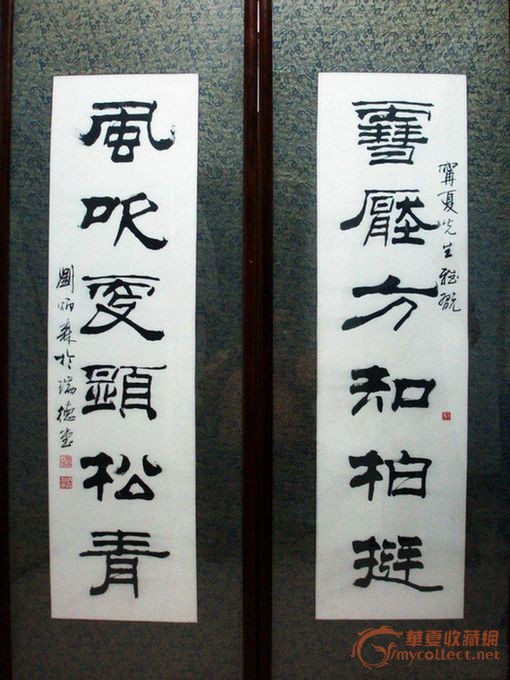 甯夏先生雅
雪壓方知柏挺
風吹更顕松青
劉炳森於瑞德堂
華夏收藏網
mycollect.net